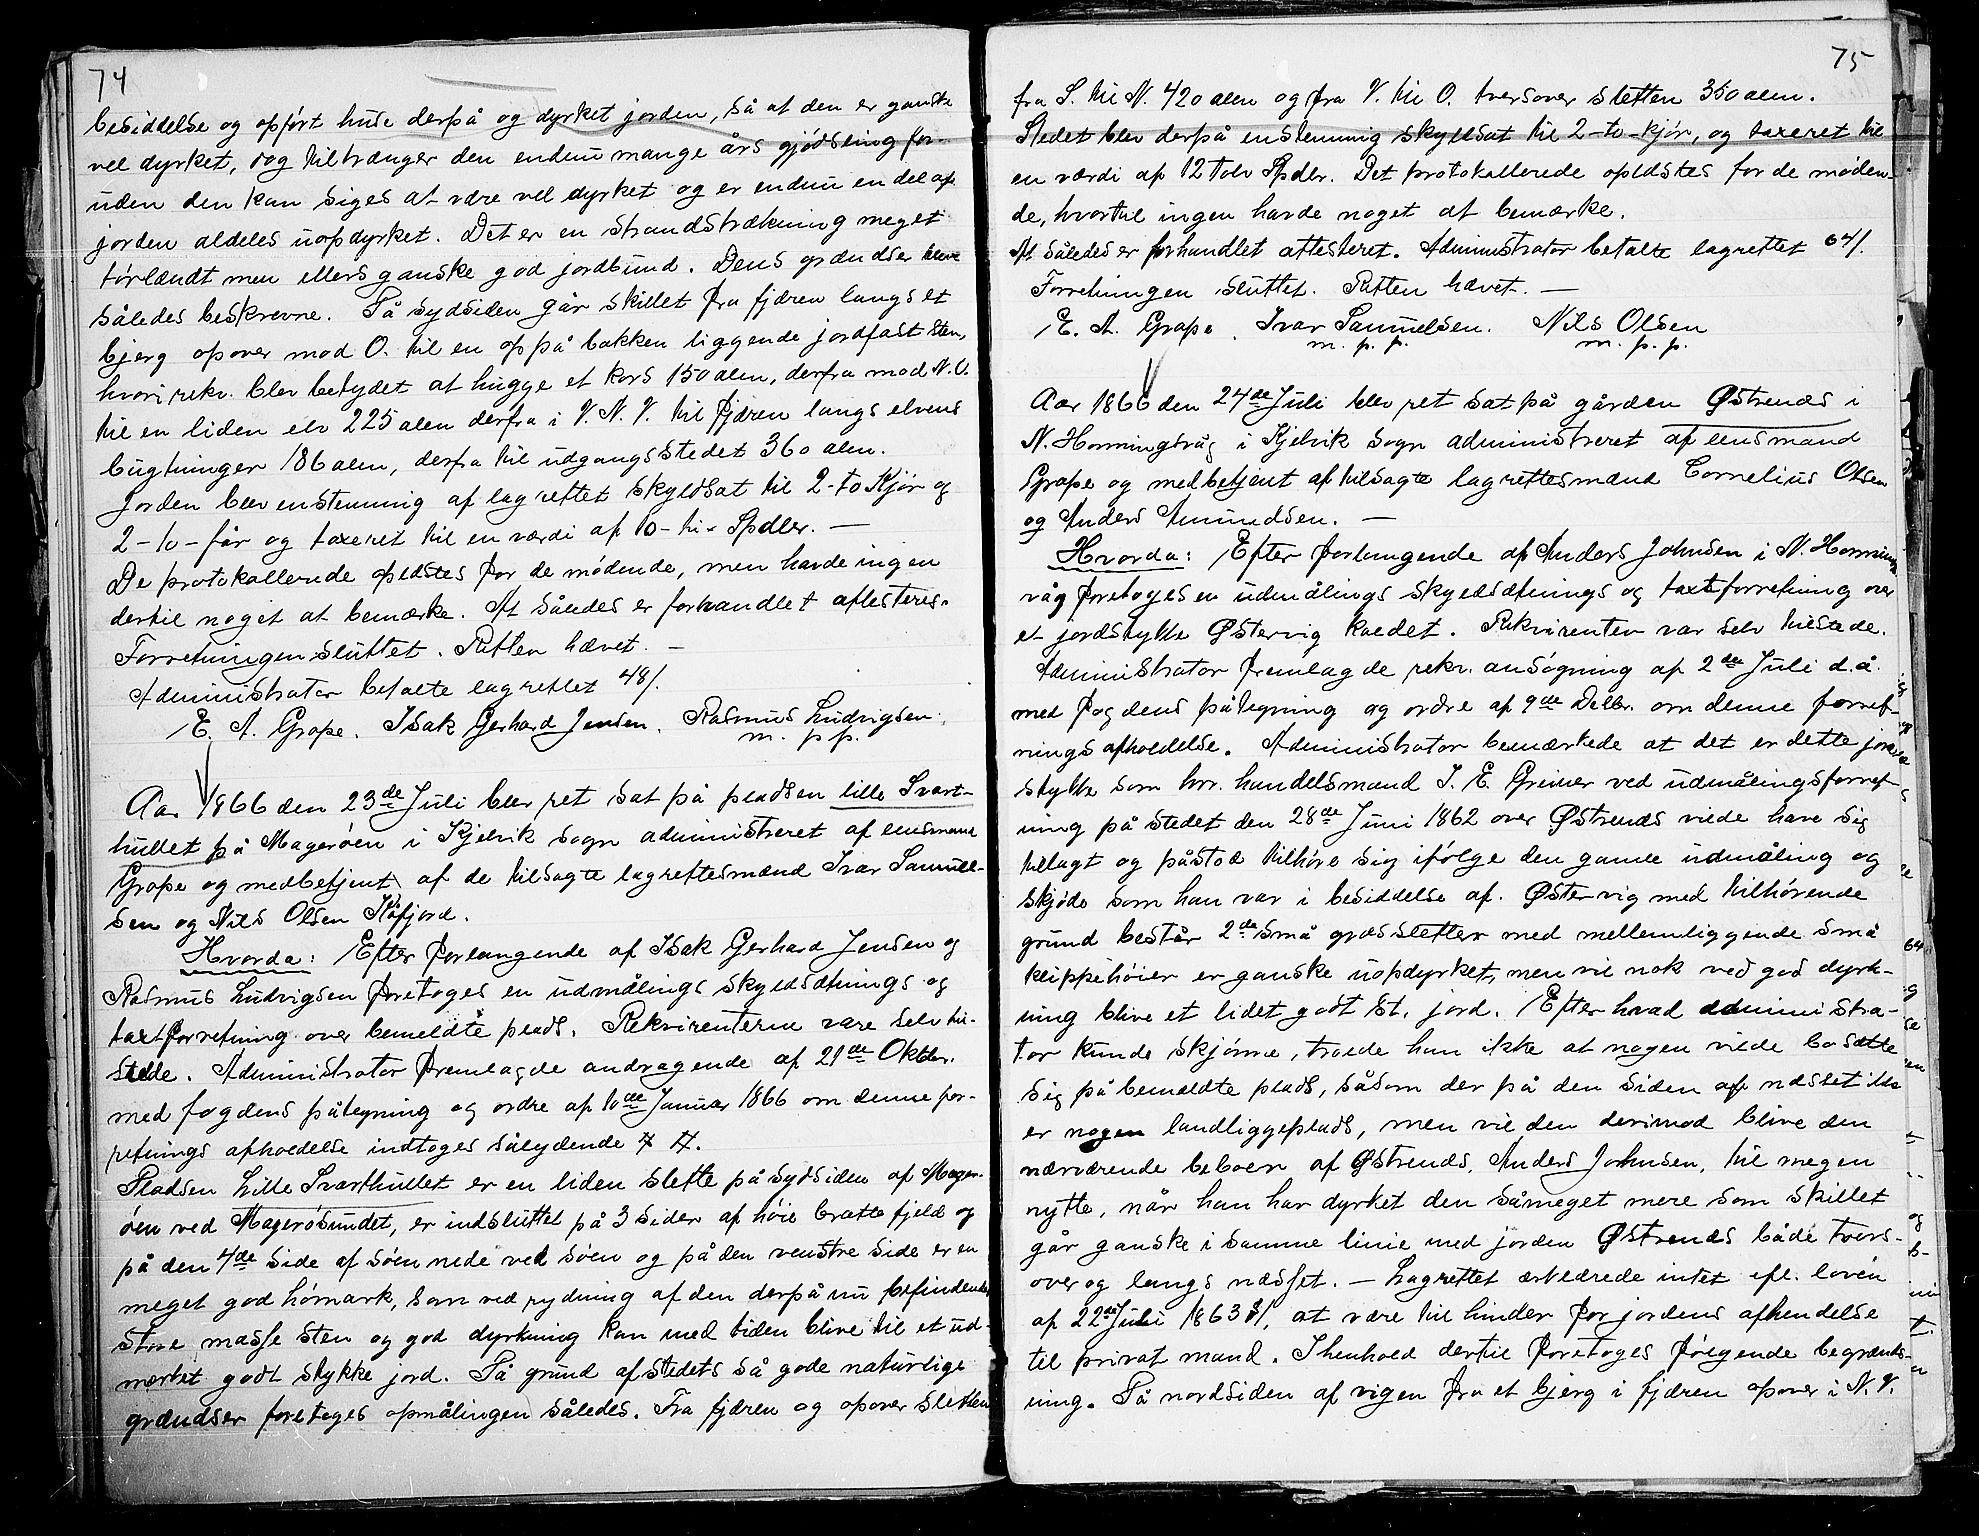 74
besiddelse og opført huse derpå og dyrket jorden, så at den er ganske
vel dyrket, dog tiltrænger den endnu mange års gjødsling for-
uden den kan siges at være vel dyrket og er endnu en del af
jorden aldeles uopdyrket. Det er en strandstrækning meget
tørlændt men ellers ganske god jordbund. Dens grændser bleve
således beskrevne. På sydsiden går skillet fra fjæren langs et
bjerg opover mod O. til en op på bakken liggende jordfast sten,
hvori rekv. blev betydet at hugge et kors 150 alen, derfra mod N.O.
til en liden elv 225 alen derfra i V. N. V. til fjæren langs elvens
bugtninger 186 alen, derfra til udgangsstedet 360 alen.
Jorden blev enstemmig af lagrettet skyldsat til 2-to Kjør og
2-to-får og taxeret til en værdi af 10-ti- Spdlr. —
De protokollerede oplæstes for de mødende, men havde ingen
dertil noget at bemærke. At således er forhandlet attesteres.
Forretningen sluttet. Retten hævet. —
Administrator betalte lagrettet 48/.
E. A. Grape. Isak Gerhard Jensen. Rasmus Ludvigsen.
m. p. p.
Aar 1866 den 23de Juli blev ret sat på pladsen lille Svart-
hullet på Magerøen i Kjelvik sogn administreret af lensmand
Grape og medbetjent af de tilsagte lagrettesmænd Ivar Samuel-
sen og Nils Olsen Kåfjord.
Hvorda: Efter forlangende af Isak Gerhard Jensen og
Rasmus Ludvigsen foretoges en udmålings skyldsætnings og
taxtforretning over bemeldte plads. Rekvirenterne vare selv til-
stede. Administrator fremlagde andragende af 21de Oktbr.
med fogdens påtegning og ordre af 10de Januar 1866 om denne for-
retnings afholdelse indtoges sålydende # #.
Pladsen Lille Svarthullet er en liden slette på sydsiden af Mager-
øen ved Magerøsundet, er indsluttet på 3 sider af høie bratte fjeld og
på den 4de side af søen nede ved søen og på den venstre side er en
meget god hømark, som ved rydning af den derpå nu befindende
store masse sten og god dyrkning kan med tiden blive til et ud-
mærket godt stykke jord. På grund af stedets så gode naturlige
grændser foretoges opmålingen således. Fra fjæren og opover sletten
75
fra S. til N. 420 alen og fra V. til O. tversover sletten 360 alen.
Stedet blev derpå enstemmig skyldsat til 2-to-kjør, og taxeret til
en værdi af 12 tolv Spdlr. Det protokollerede oplæstes for de møden-
de, hvortil ingen havde noget at bemærke.
At således er forhandlet attesteret. Administrator betalte lagrettet 64/.
Forretningen sluttet. Retten hævet. —
E. A. Grape. Ivar Samuelsen. Nils Olsen
m. p. p. m. p. p.
Aar 1866 den 24de Juli blev ret sat på gården Østrenæs i
N. Honningsvåg i Kjelvik sogn administreret af lensmand
Grape og medbetjent af tilsagte lagrettesmænd Cornelius Olsen
og Anders Amundsen. —
Hvorda: Efter forlangende af Anders Johnsen i N. Honnings-
våg foretoges en udmålings skyldsætnings og taxtforretning over
et jordstykke Østervig kaldet. Rekvirenten var selv tilstede.
Administrator fremlagde rekv. ansøgning af 2den Juli d.å.
med fogdens påtegning og ordre af 9de Delbr. om denne forret-
nings afholdelse. Administrator bemærkede at det er dette jord-
stykke som hr. handelsmand I. E. Greiner ved udmålingsforret-
ning på stedet den 28de Juni 1862 over Østrenæs vilde have sig
tillagt og påstod tilhøre sig ifølge den gamle udmåling og
skjøde som han var i besiddelse af. Østervig med tilhørende
grund består 2de små græssletter med mellemliggende små
klippehøier er ganske uopdyrket, men vil nok ved god dyrk-
ning blive et lidet godt st. jord. Efter hvad administra-
tor kunde skjønne, troede han ikke at nogen vilde bosætte
sig på bemeldte plads, såsom der på den siden af næsset ikke
er nogen landliggeplads, men vil den derimod blive den
nærværende beboer af Østrenæs, Anders Johnsen, til megen
nytte, når han har dyrket den såmeget mere som skillet
går ganske i samme linie med jorden Østrenæs både tvers-
over og langs næsset. — Lagrettet erklærede intet efl. loven
af 22de Juni 1863 §1, at være til hinder for jordens afhendelse
til privat mand. I henhold dertil foretoges følgende begrænds-
ning. På nordsiden af vigen fra et bjerg i fjæren opover i N. V.